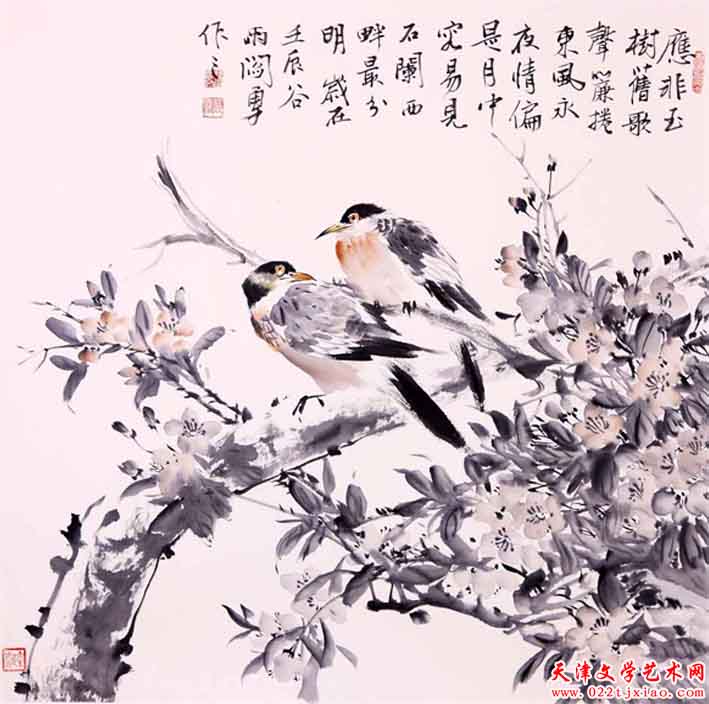 應非玉
樹舊歌
聲簾捲
東風永
夜情偏
是月中
容易見
石闌西
畔最分
明歲在
壬辰谷
雨閻勇
作之
天津文学艺术网
www.022tjxiao.com